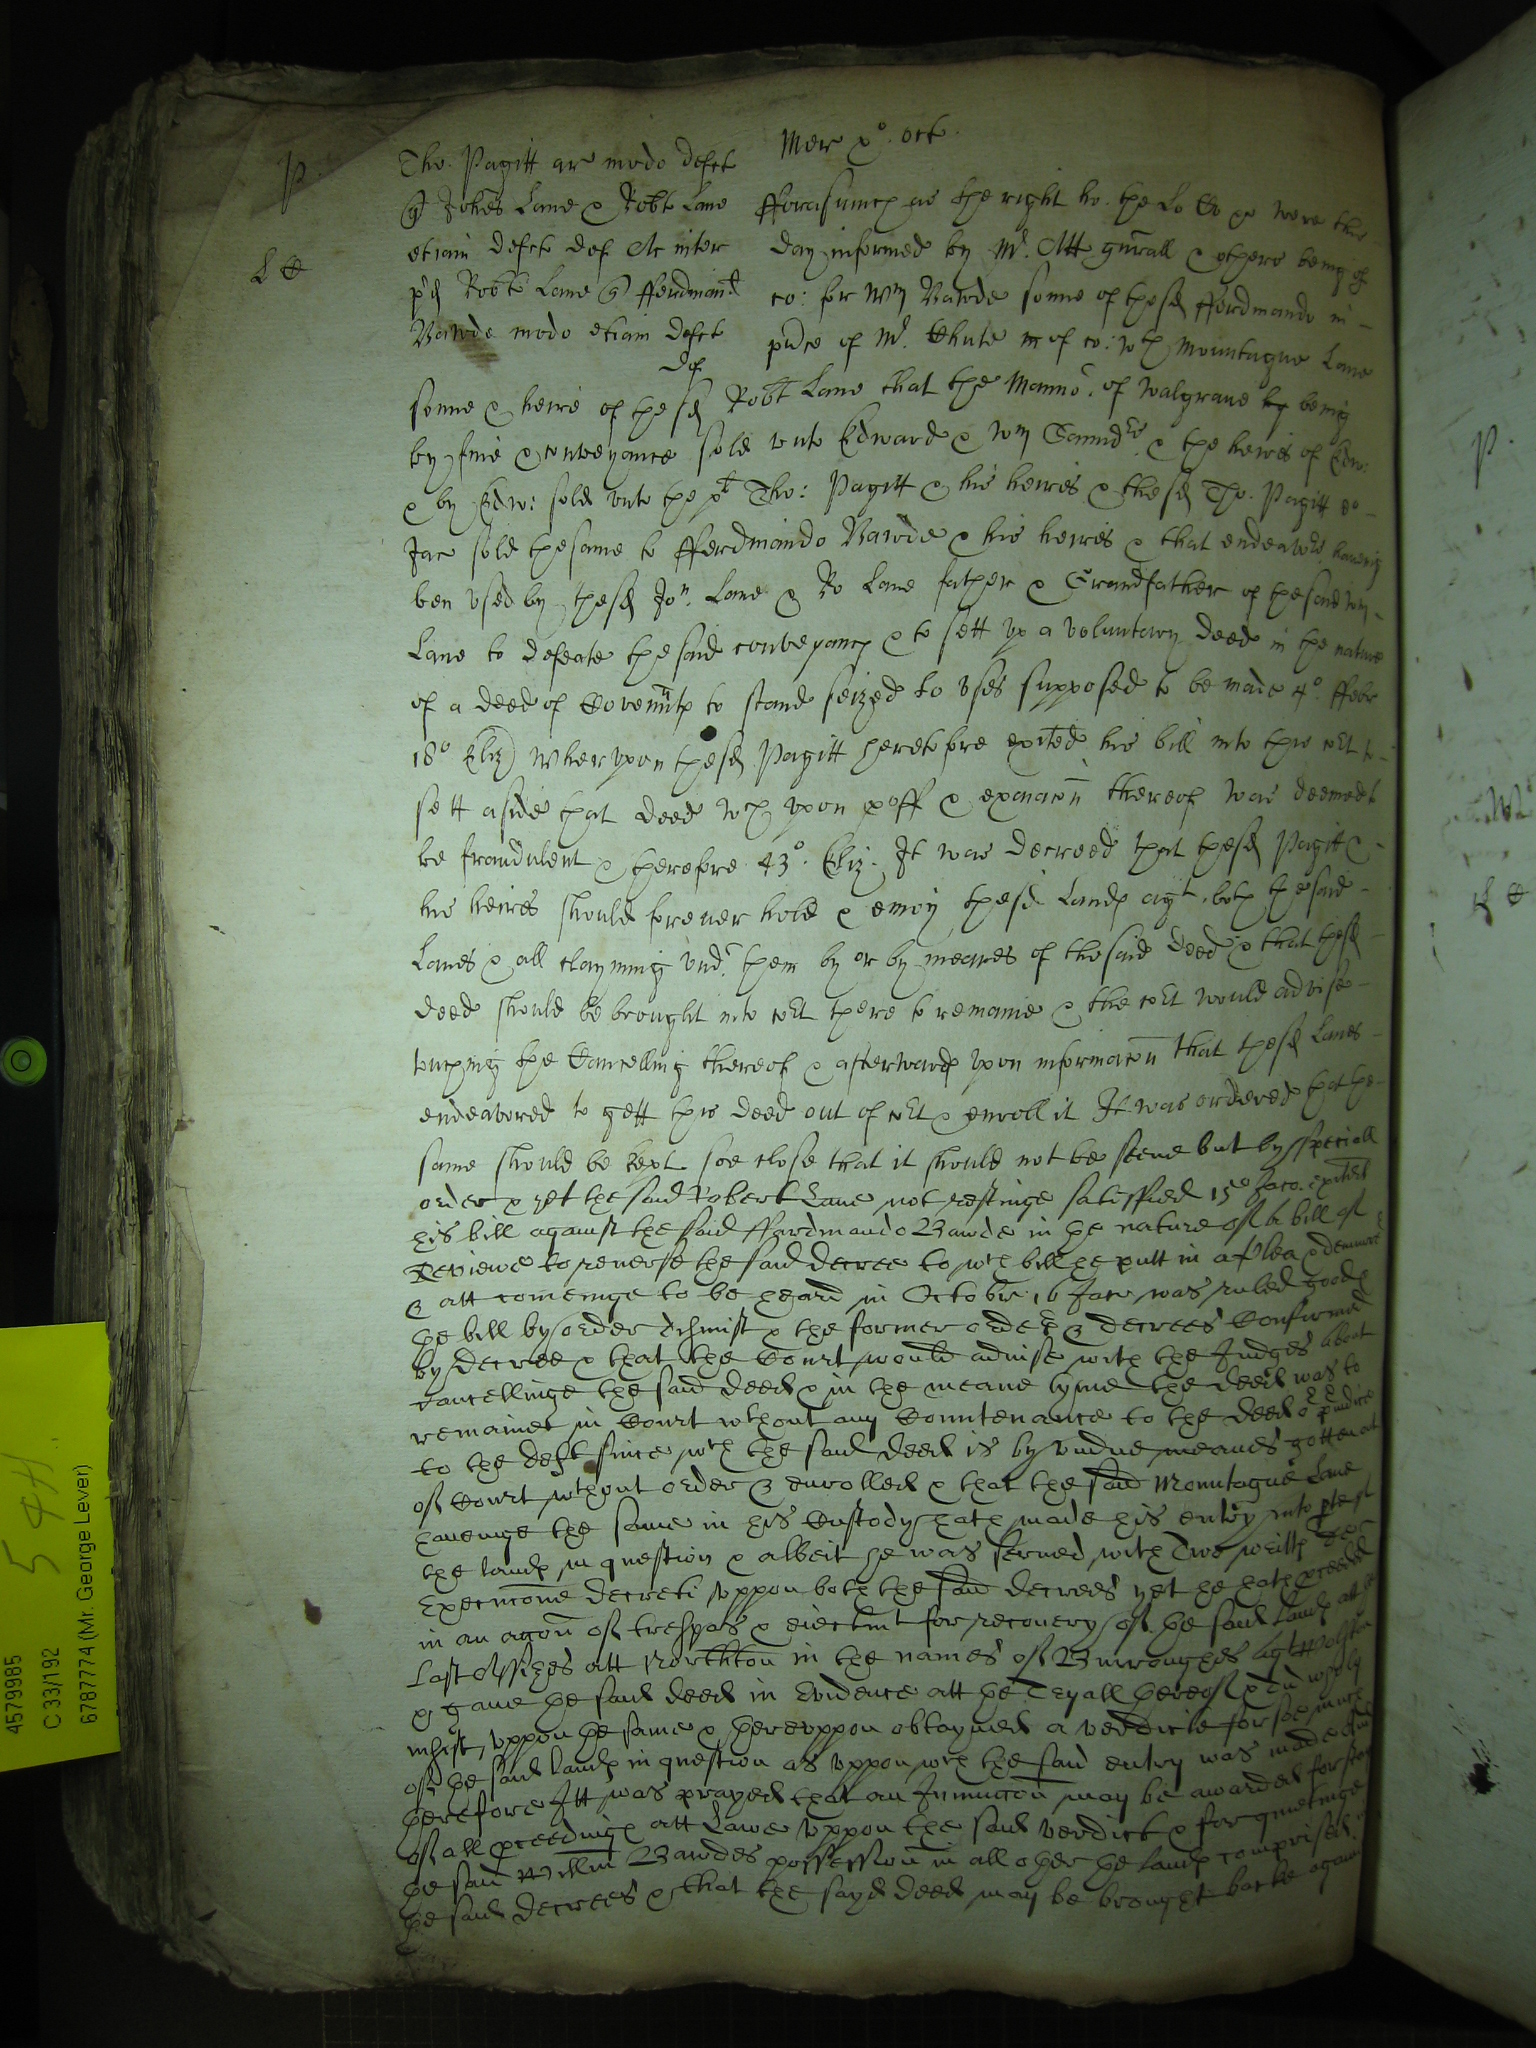 Mer xo. Oct.
P.
Tho. Pagitt ar modo defct
Johes Lane & Robte Lane
etiam defct def Ac inter
L C
p'd Robte Lane ffardinand
Bawde modo etiam defct
def
fforasmuch as the right ho. the Lo Co & were this
day informed by Mr. Att gn'rall & others being of
co: for Wm Bawde sonne of the sd fferdinando in
p'nce of Mr. Chute of co: wth Mountague Lane
sonne & heire of the sd Robt Lane that the Manno'. of Walgrave being
by fine & conveyance sold unto Edward & Wm & the heires of Edw:
& by Edw: sold unto the pt Tho: Pagitt & his heires & the sd Tho. Pagitt
Jac sold the same to fferdinando Bawde & his heires & that endeavors having
ben used by the sd Jon. Lane & Ro Lane father & Grandfather of the said
Lane to defeate the said conveyanc & to sett up a voluntary deed in the nature
of a deed of Covennt to stand seized to uses supposed to be made 4o. ffebr
18o Eliz) Wherupon the sd Pagitt heretofore exited his bill into this cort to
sett aside that deed wch upon proff & exanacon thereof was deemed to
be fraudulent & therefore 43o. Eliz. It was decreed that the sd Pagitt &
his heires should for euer hold & enioy the sd Land agt. both the said
Lanes & all clayming und'. them by or by meanes of the said deed & that the sd
deed should be brought into cort there to remaine & the cort would advise
touching the Cancelling thereof & afterward upon informacon that the sd Lanes
endeavored to gett this deed out of cort & enroll it It was ordered that the
same should be kept soe close that it should not be seene but by speciall
order & yet the said Robert Lane not restinge satisffied 15o Jaco. exited
his bill against the said ffardinando Bawde in the nature of a bill of
Reviewe to reverse the said decree to wch bill he putt in a Plea & demurrer
& att comeinge to be heard in October 16 Jac was ruled good &
the bill by order dismist & the former order & decrees Confirmed
by decree & that the Court would advise with the Judges about
Cancellinge the said deed & in the meane tyme the deed was to
remaine in Court wthout any Countenance to the deed or p'iudice
to the deft since wch the said deed is by undue meanes gotten out
of Court wthout order & enrolled & that the said Mountague Lane
haueinge the same in his Custody hath made his entry into pte of
the land in question & albeit he was serued with Two writt de
Execucione decreti uppon both the said decrees yet he hath proceeded
in an accon of trespas & eiectmt for recovery of the said land att the
last Assizes att Northton in the names of Burroughes agt
& gaue the said deed in Evidence att the Tryall thereof & did wholy
insist uppon the same & thereuppon obtayned a verdicte for soe much
of the said land in question as uppon wch the said entry was made And
therefore Itt was prayed that an Iniunccon may be awarded for stay
of all proceeding att Lawe uppon the said verdict & for quietinge
the said Willm Bawdes possession in all other the land comprised in
the said decrees & that the sayd deed may be brought backe again
4579985
C 33/192
6787774 (Mr. George Lever)
541